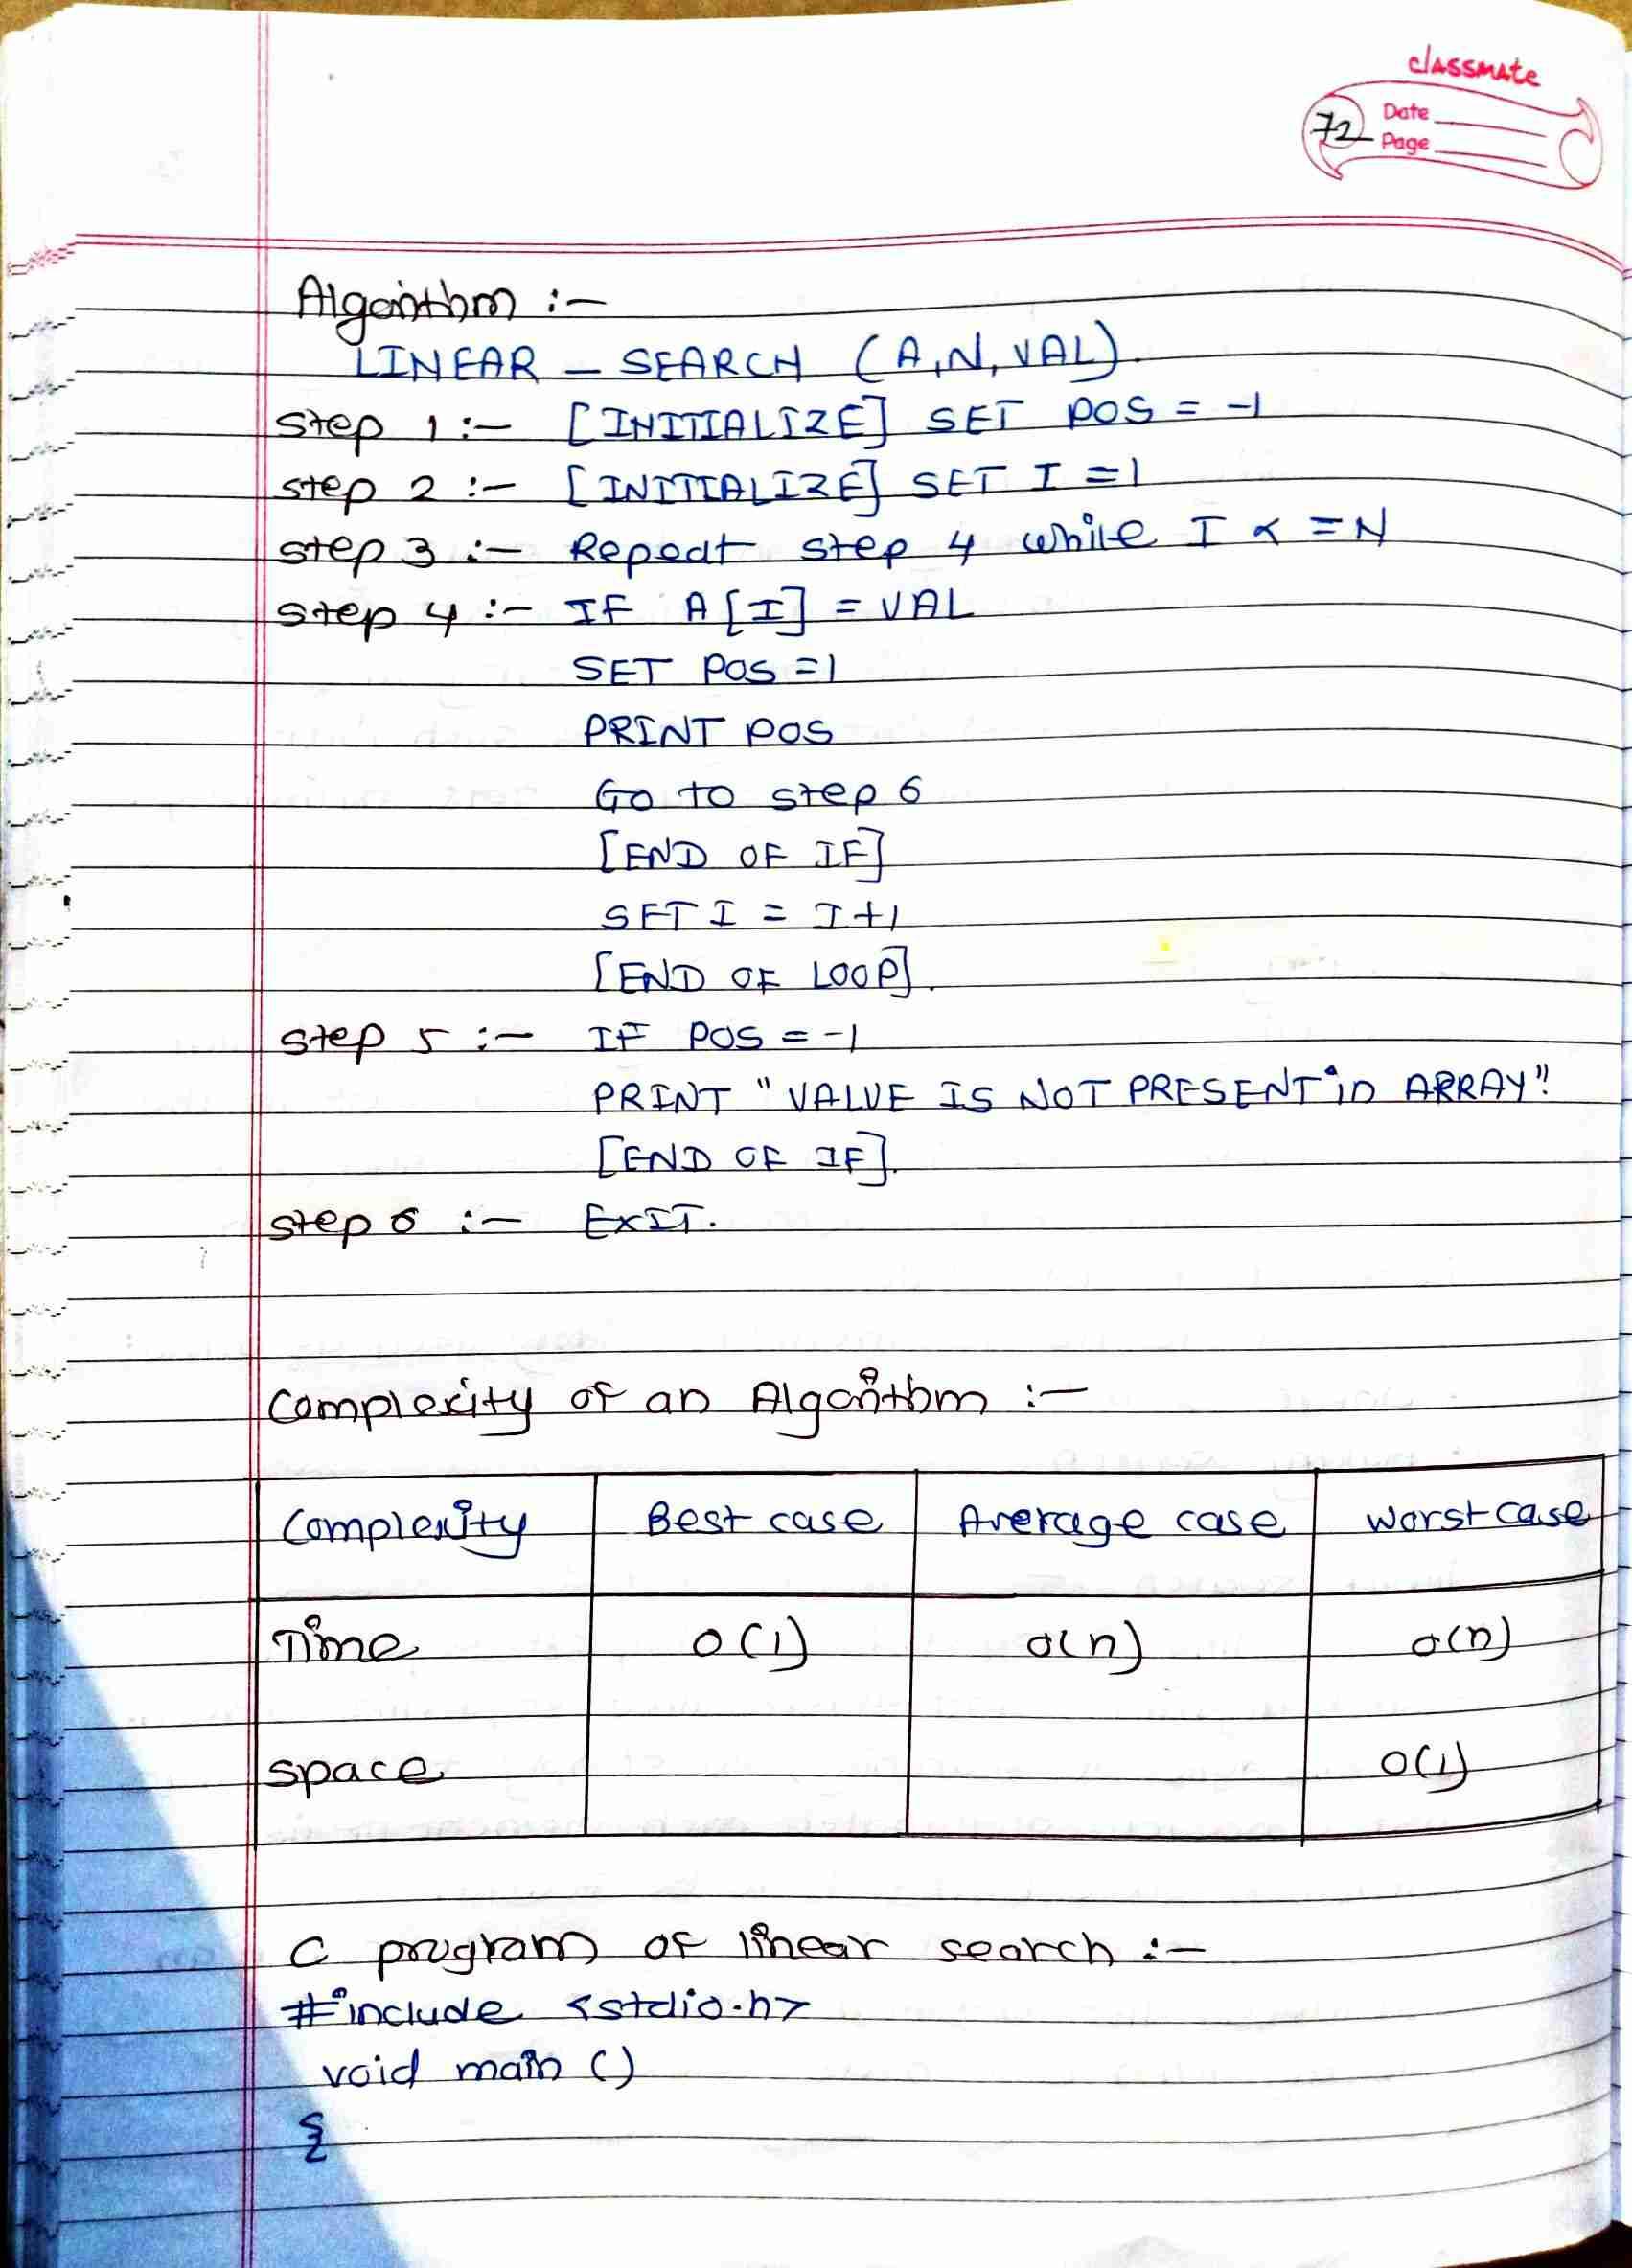 classmate
Date
72 Page
Algorithm :-
LINEAR - SEARCH (A,N,VAL).
step 1 :- [INITIALIZE] SET POS = -1
step 2 :- [INITIALIZE] SET I = 1
step 3 :- Repeat step 4 while I < = N
step 4 :- IF A[I] = VAL
SET POS = 1
PRINT POS
Go to step 6
[END OF IF]
SET I = I+1
[END OF LOOP].
step 5 :- IF POS = -1
PRINT "VALUE IS NOT PRESENT in ARRAY"!
[END OF IF].
step 6 :- EXIT.
Complexity of an Algorithm :-
Complexity Best case Average case worst case
Time O(1) O(n) O(n)
space O(1)
C program of linear search :-
#include <stdio.h>
void main ()
{